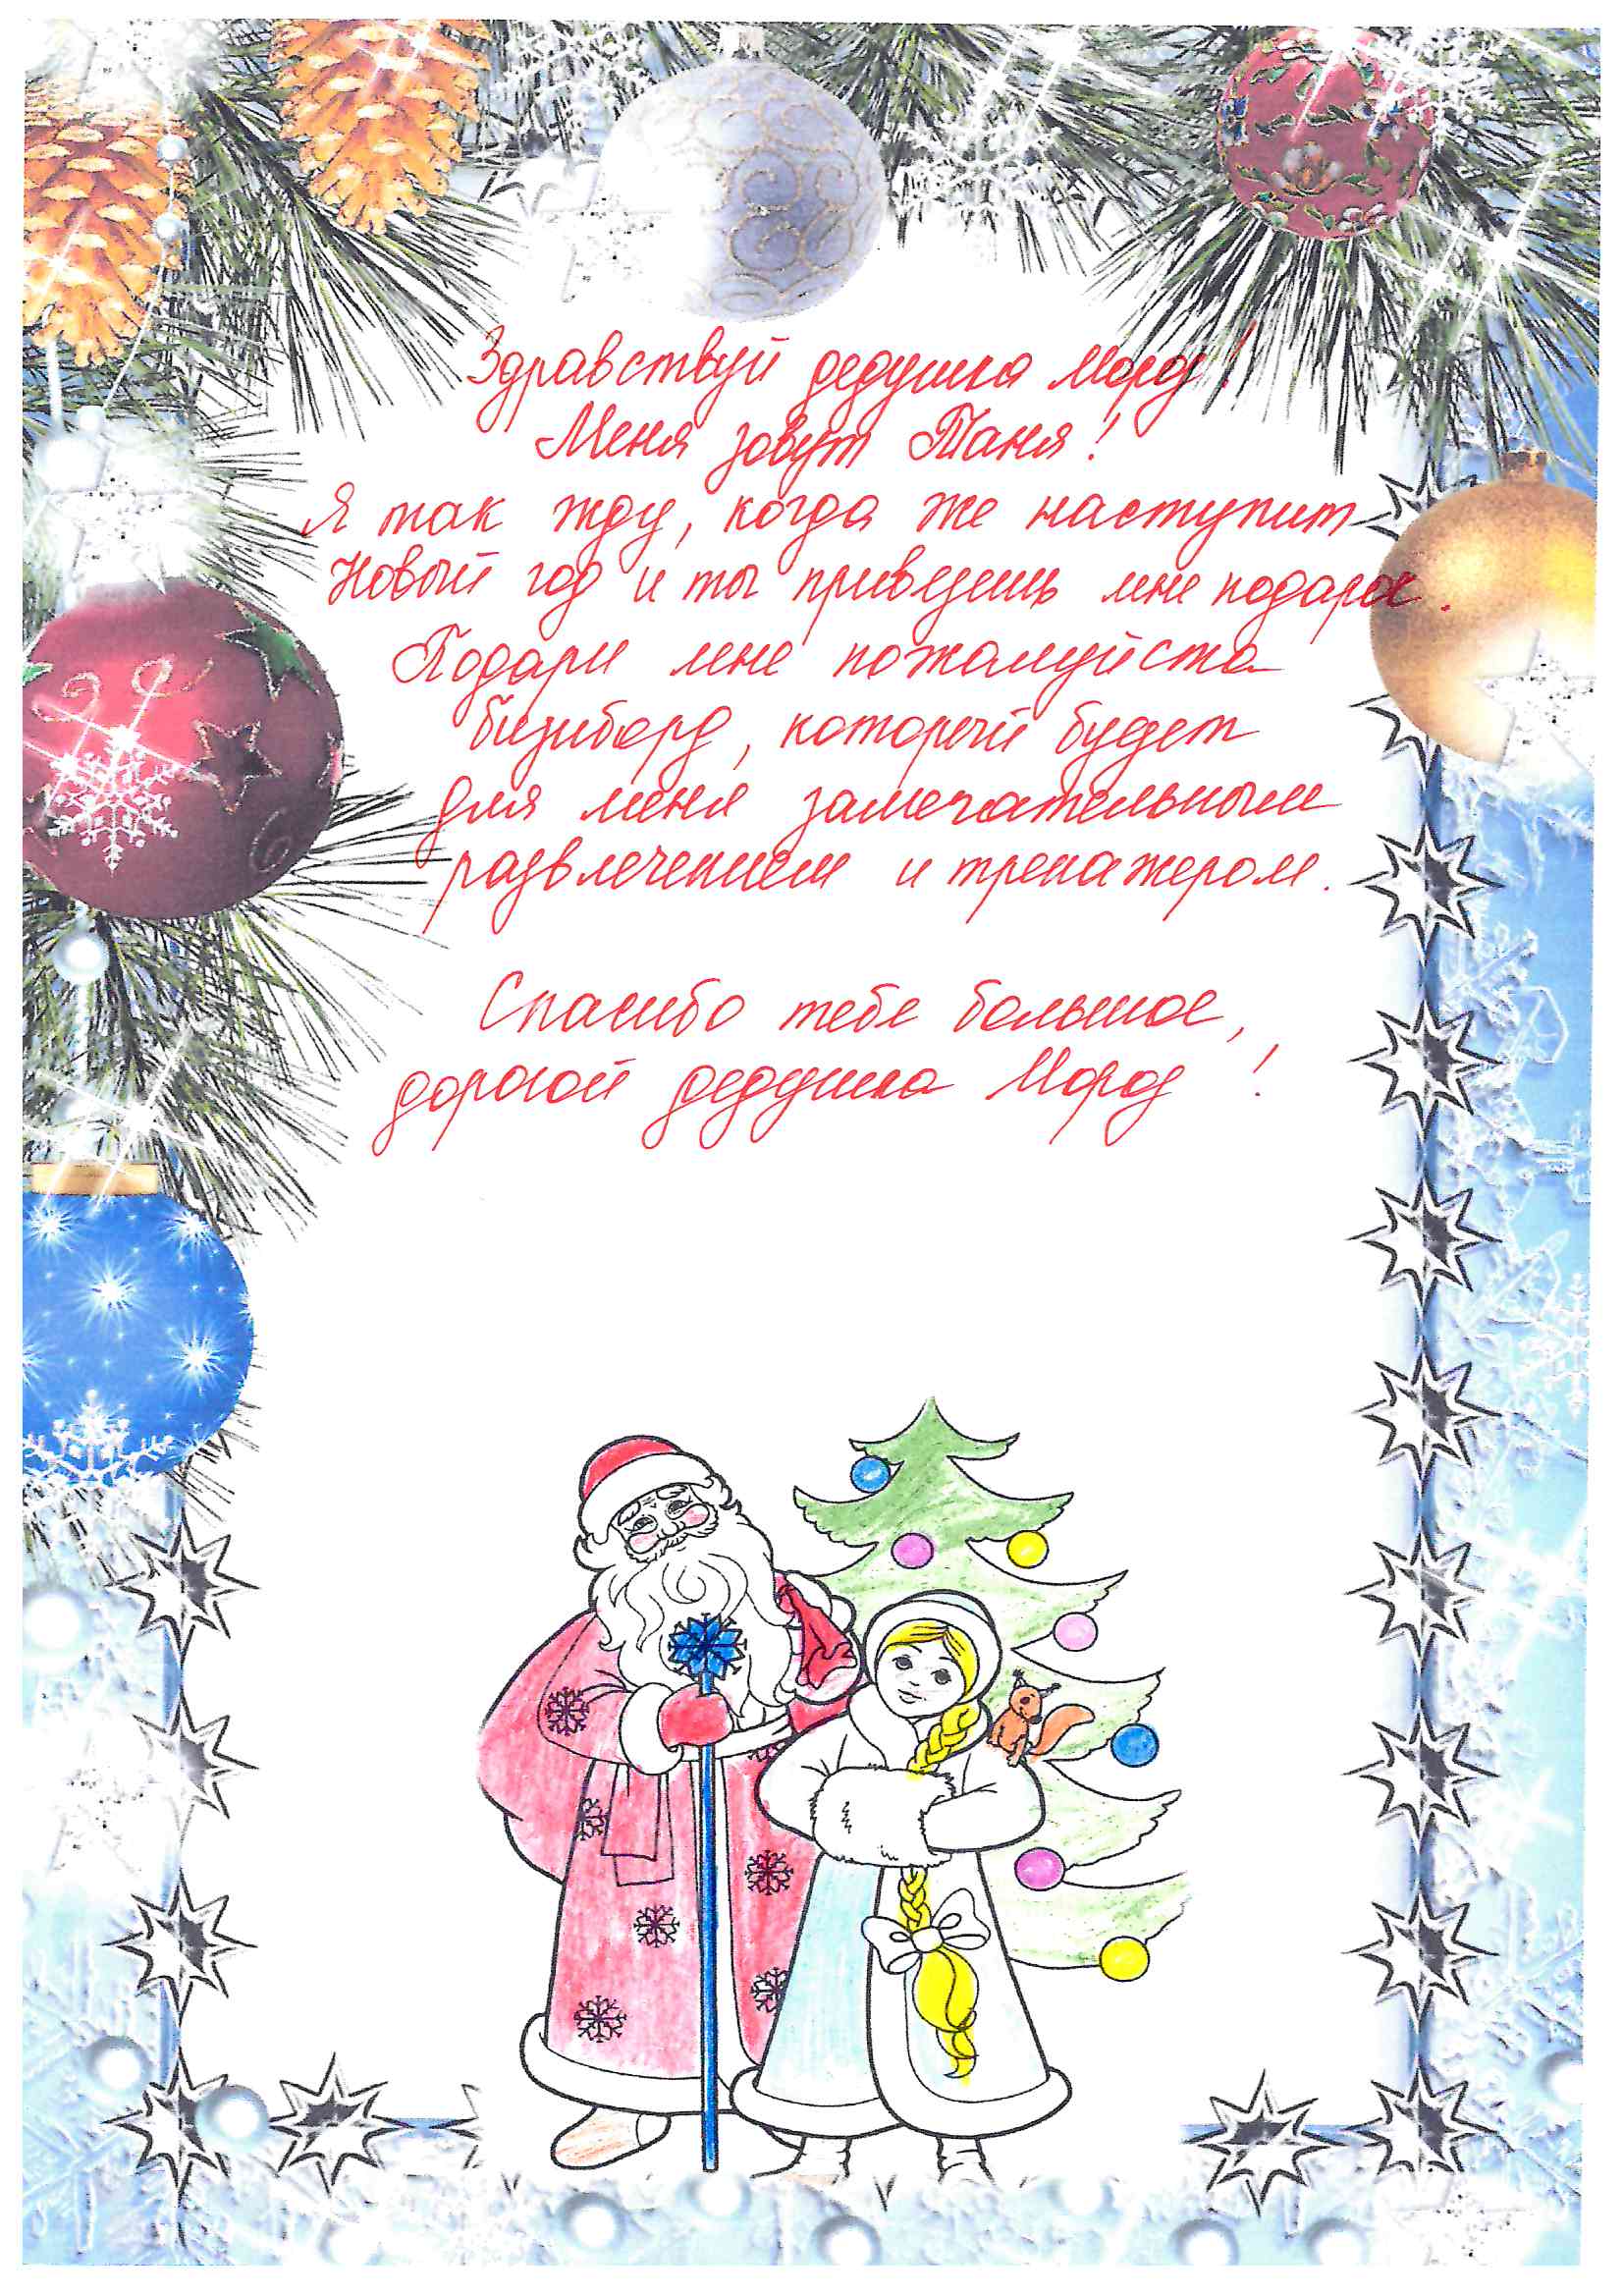 Здравствуй дедушка Мороз!
Меня зовут Таня!
Я так жду, когда же наступит
Новый год и ты привезешь мне подарок.
Подари мне пожалуйста
бизиборд, который будет
для меня замечательным
развлечением и тренажером.
Спасибо тебе большое,
дорогой дедушка Мороз!